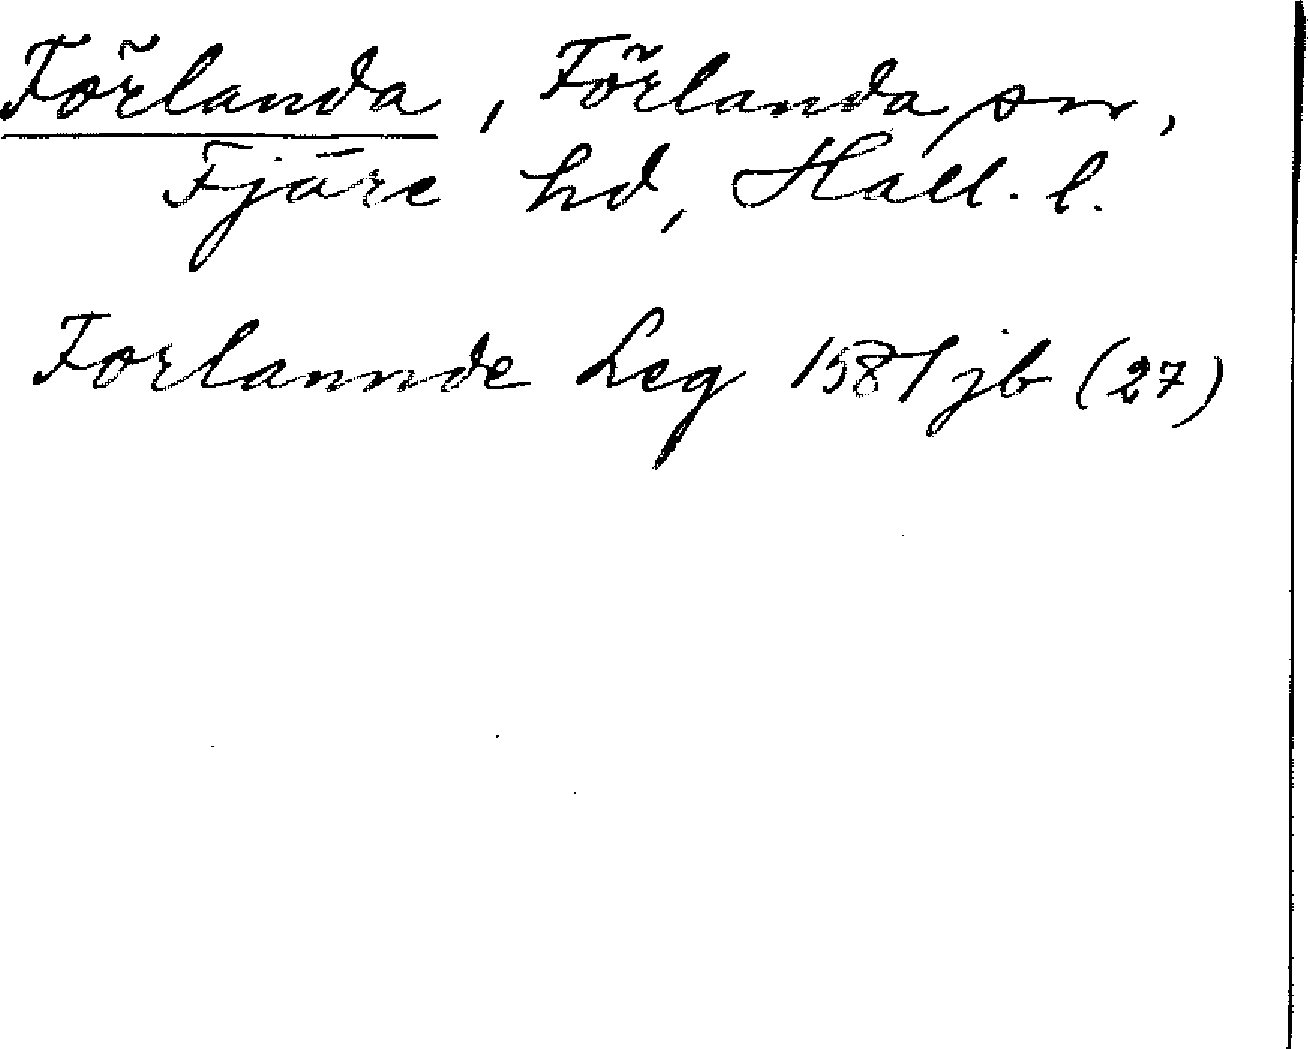 Förlanda, Förlanda sn,
Fjäre hd, Hall. l.
Forlannde Leg 1581 jb (27)